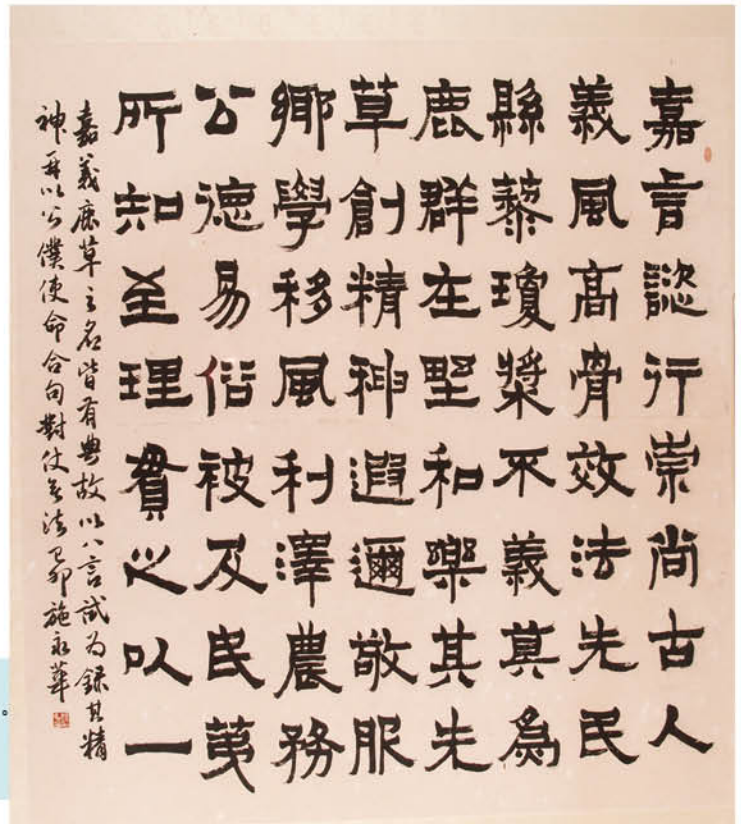 嘉言懿行崇尚古人
義風高骨效法先民
縣藜瓊漿不義莫為
鹿群在野和樂其先
草創精神遐邇敬服
鄉學移風利澤農務
公德易俗被及民萸
所知至理貫之以一
嘉義鹿草之名皆有典故以八言試為錄其精
神再以公僕使命合句對仗無法己卯施永華